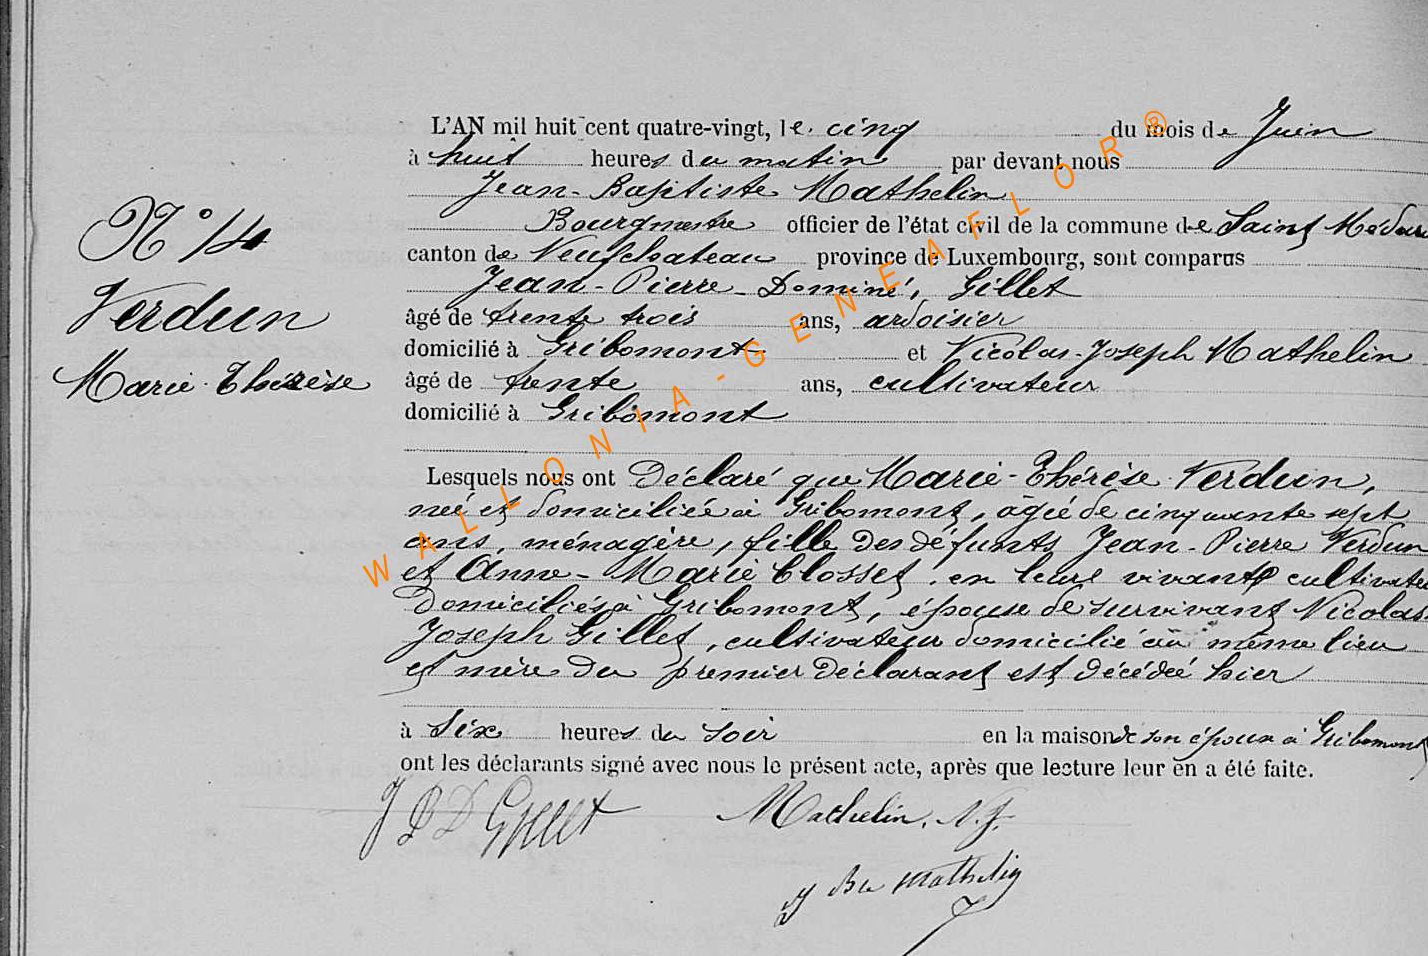 L'AN mil huit cent quatre-vingt, le cinq du mois de Juin
à huit heures du matin par devant nous
Jean-Baptiste Mathelin
Bourgmestre officier de l'état civil de la commune de Saint Médard
canton de Neufchateau province de Luxembourg, sont comparus
Jean-Pierre-Dominé, Gillet
âgé de trente trois ans, ardoisier
domicilié à Gribomont et Nicolas-Joseph Mathelin
âgé de trente ans, cultivateur
domicilié à Gribomont
N° 14
Verdun
Marie-Thérèse
Lesquels nous ont Déclaré que Marie-Thérèse Verdun,
née et domiciliée à Gribomont, âgée de cinquante sept
ans, ménagère, fille des défunts Jean-Pierre Verdun
et Anne-Marie Closset, en leur vivant cultivate
Domiciliés à Gribomont, épouse de survivant Nicolas
Joseph Gillet, cultivateur domicilié au même lieu
et mère du premier déclarant est décédée hier
à Six heures du soir en la maison de son époux à Gribomont
ont les déclarants signé avec nous le présent acte, après que lecture leur en a été faite.
J P D Gillet Mathelin. N. J.
J Bte Mathelin
WALLONIA-GENEAFLOR®